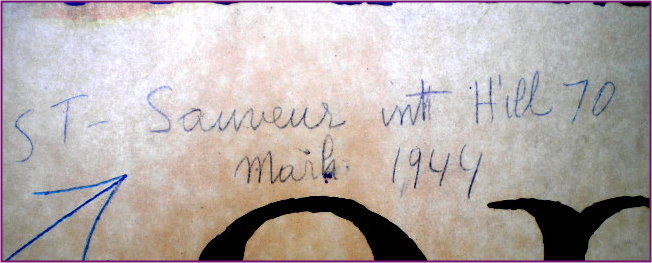 ST- Sauveur intt Hill 70
Mark. 1944
or